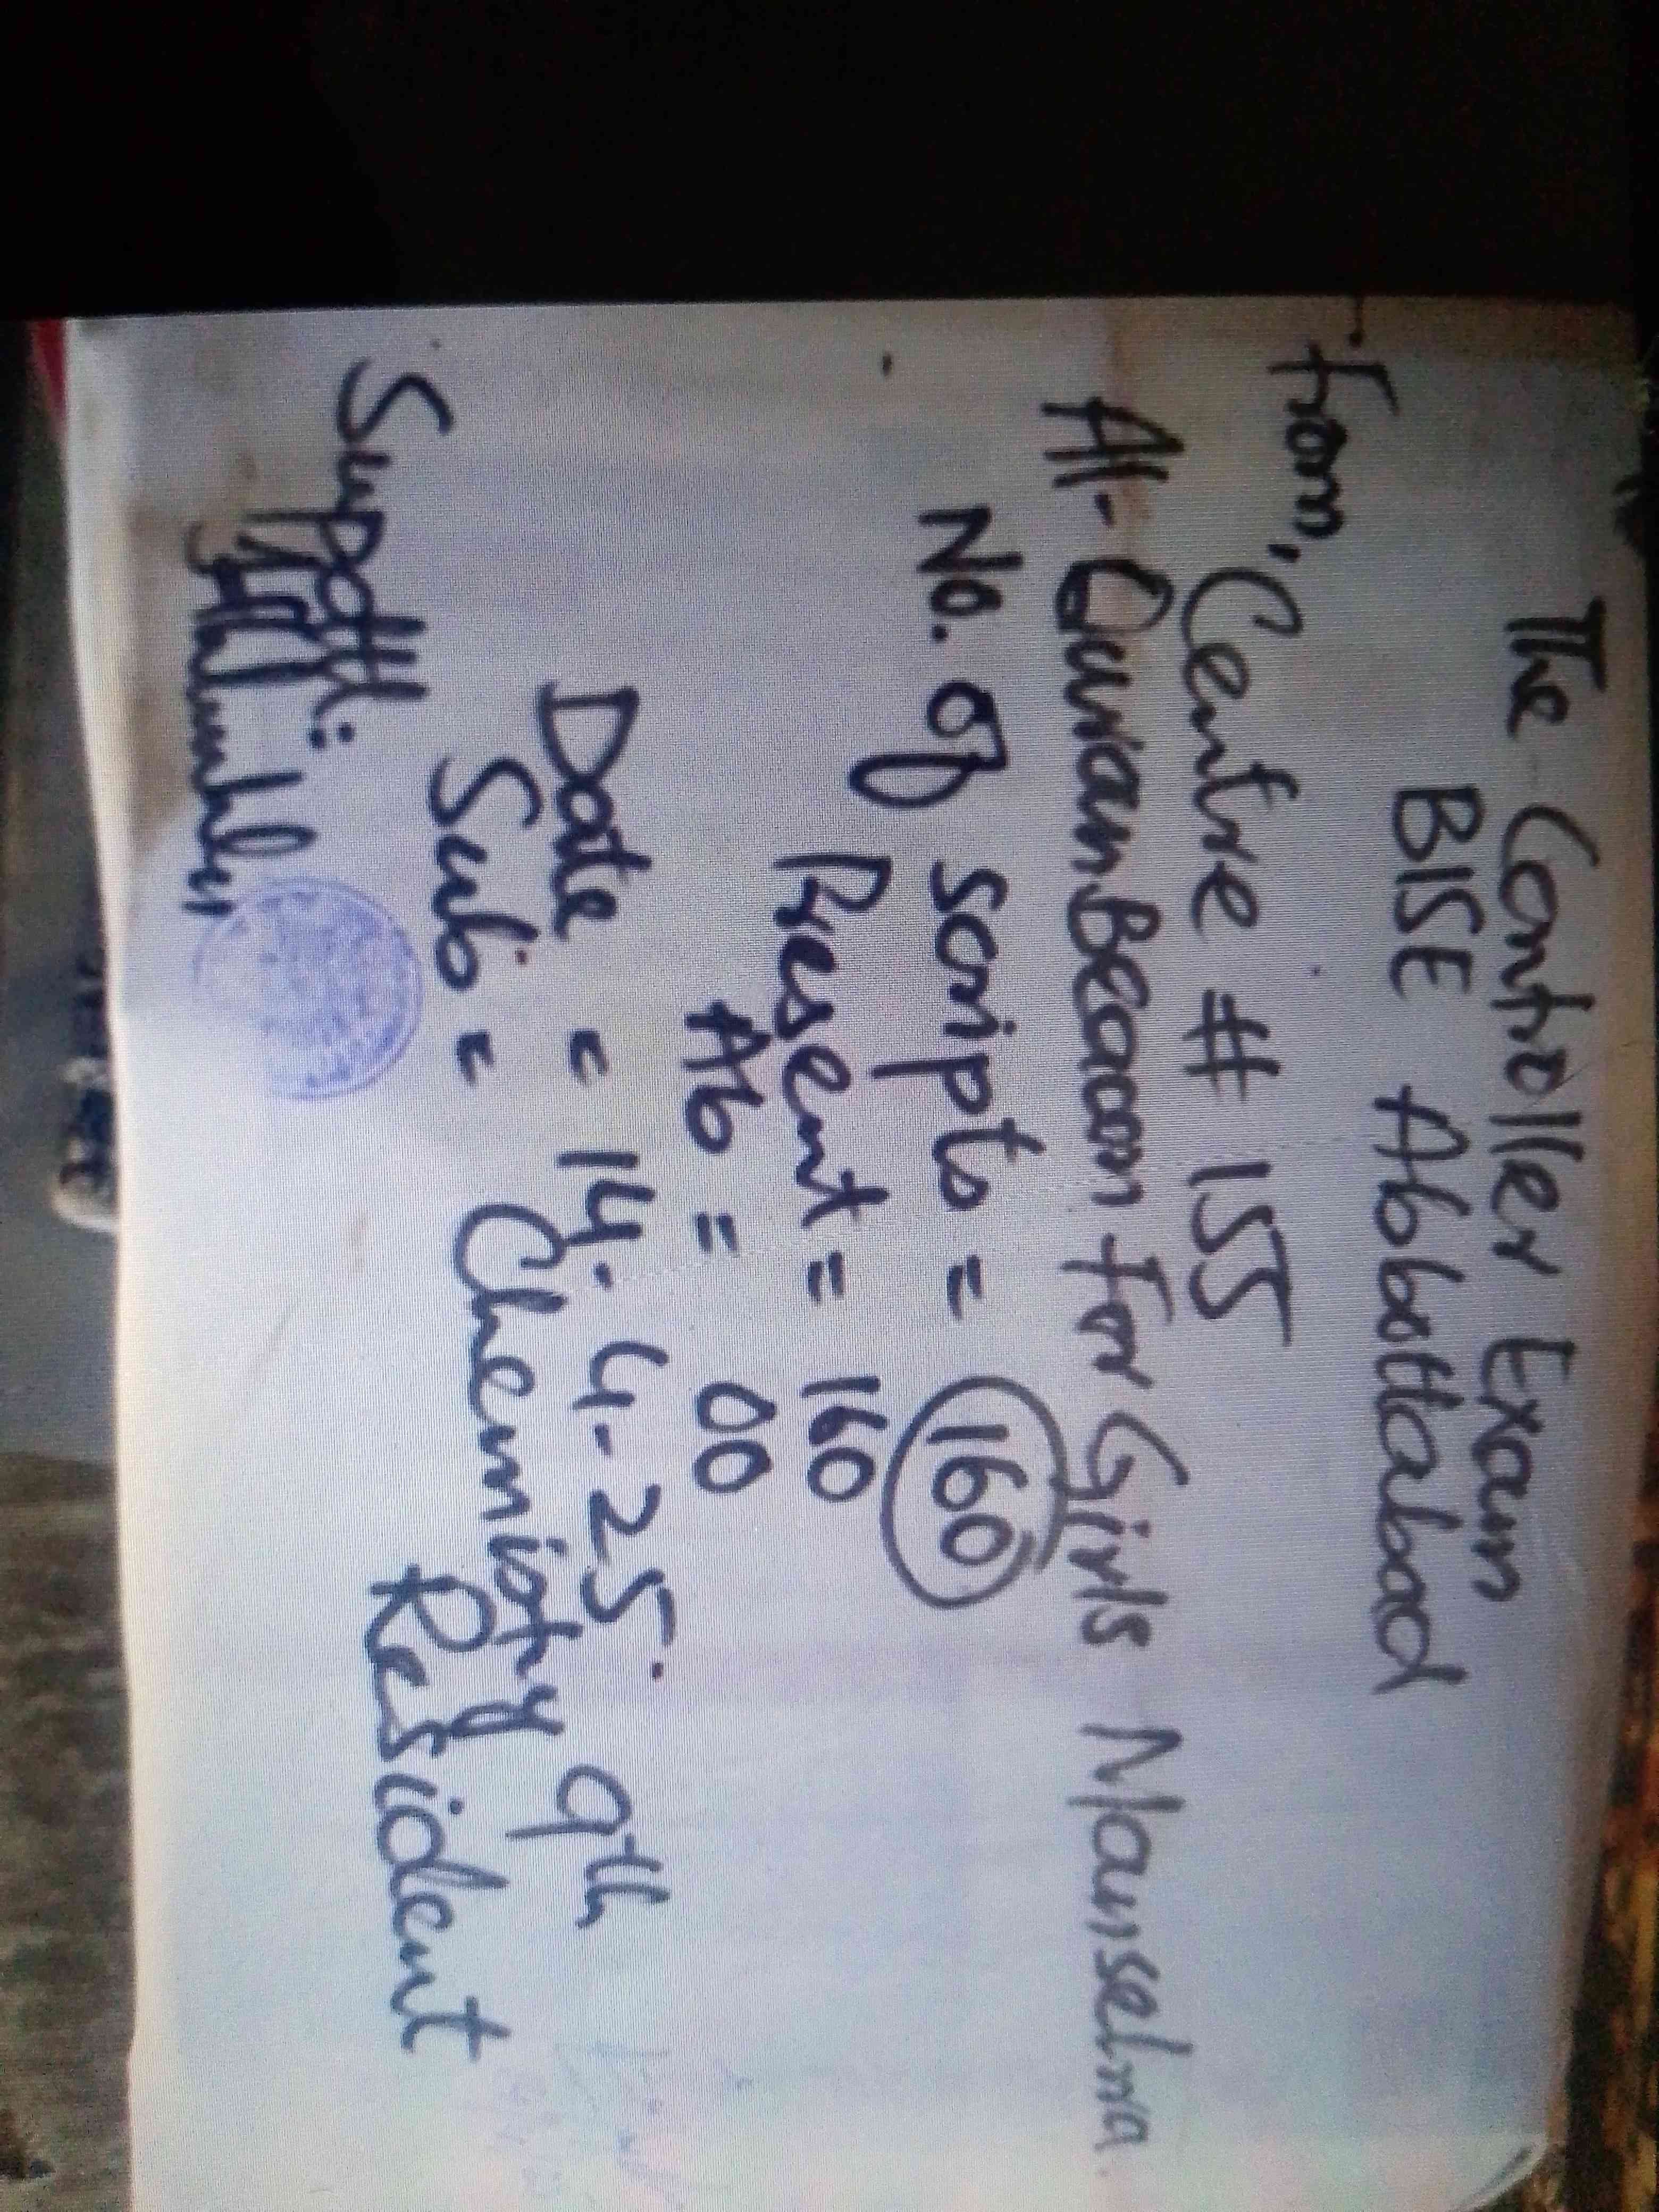 The Controller Exam
BISE Abbottabad
From,
Centre # 155
Al-Qurian Beacon For Girls Mansehra
No. of scripts = 160
Present = 160
Ab = 00
Date = 14.4-25.
Sub = Chemistry 9th
Resident
Supdtt: